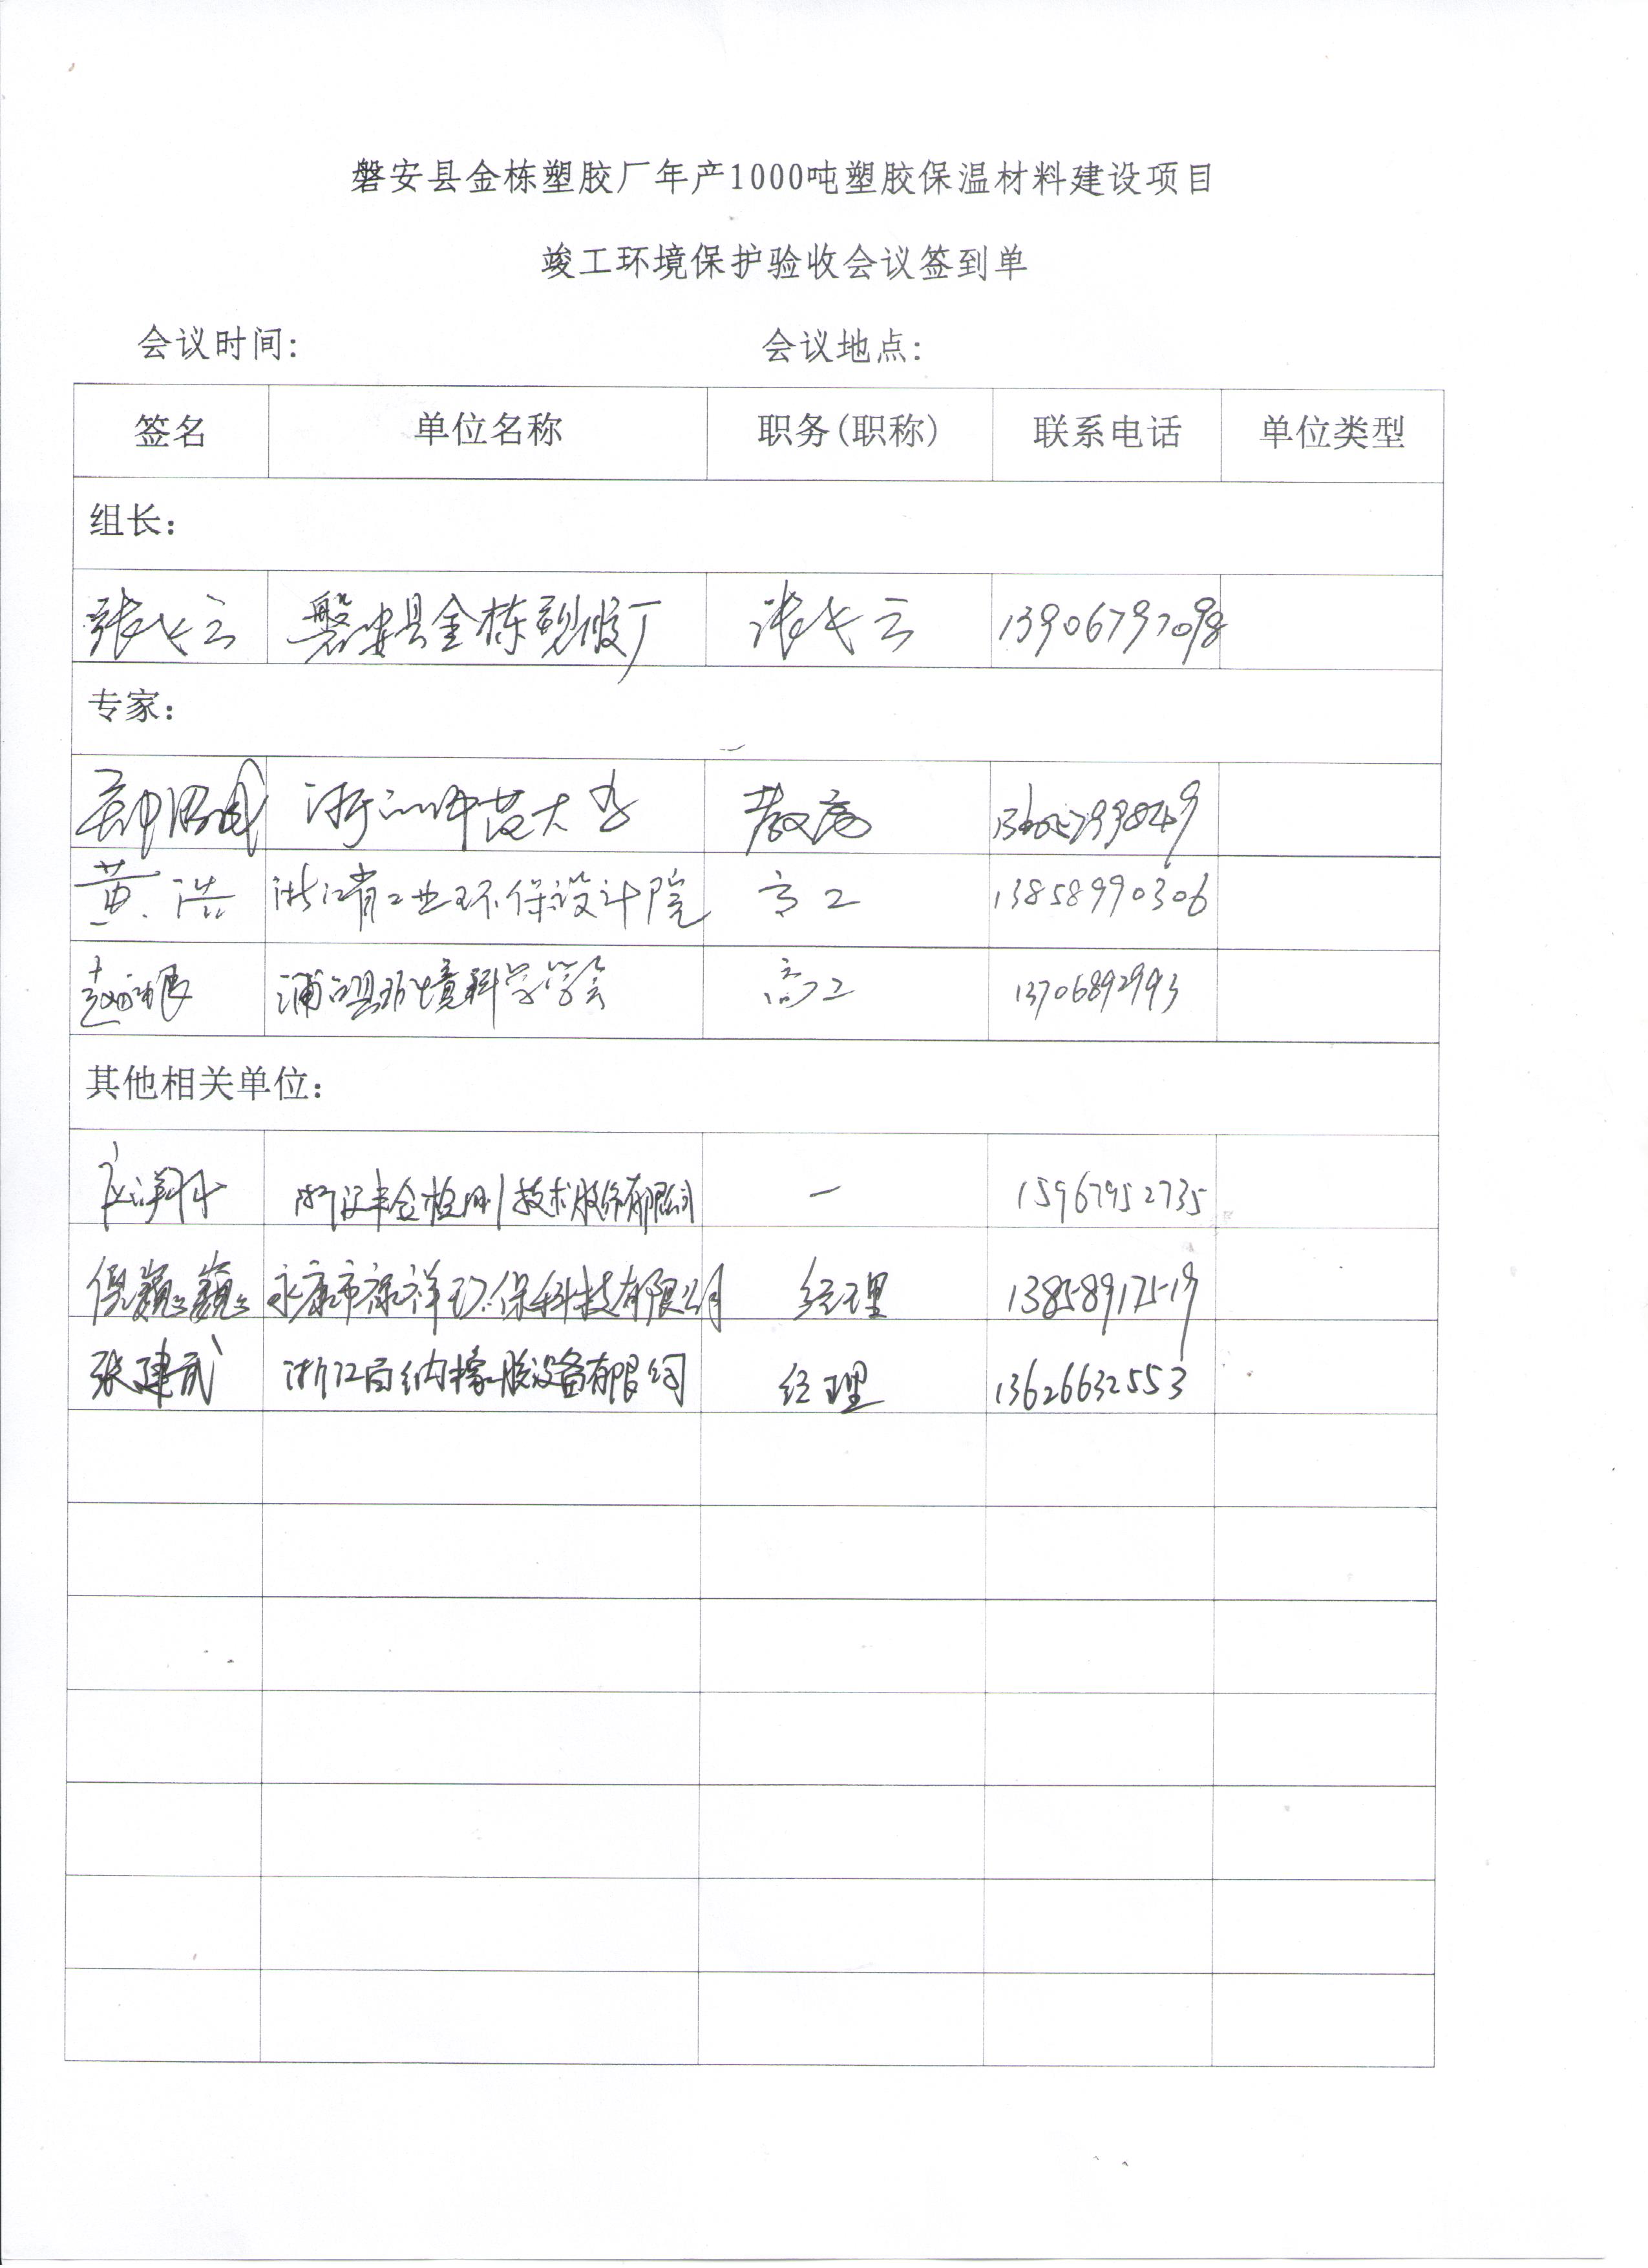 磐安县金栋塑胶厂年产1000吨塑胶保温材料建设项目
竣工环境保护验收会议签到单
会议时间: 会议地点:
签名 单位名称 职务(职称) 联系电话 单位类型
组长:
张 云 磐安县金栋塑胶厂 张 云 13906797098
专家:
浙江师范大学 教
黄浩 浙江省工业环保设计院 高工 13858990306
赵 浦江县环境科学学会 高工 13706892993
其他相关单位:
检测技术股份有限公司 — 15967952735
倪巍巍 永康市禄祥环保科技有限公司 经理 13858917519
张建武 浙江 纳橡胶设备有限公司 经理 13626632553